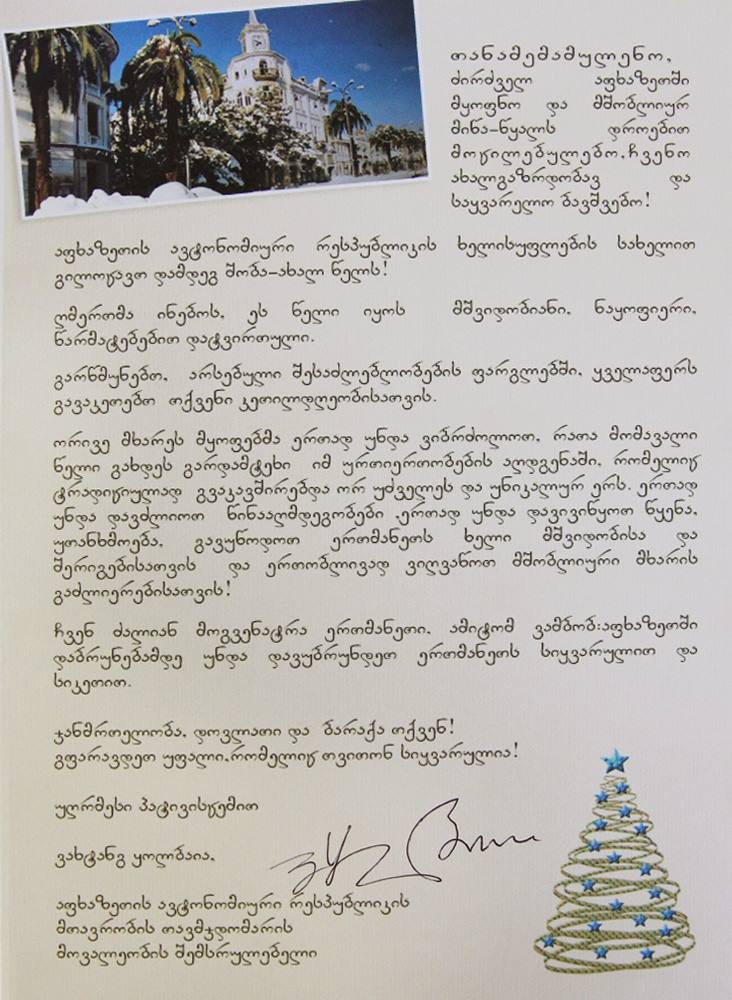 თანამემამულენო,
ძირძველ აფხაზეთში
მყოფნო და მშობლიურ
მიწა-წყალს დროებით
მოცილებულებო,ჩვენო
ახალგაზრდობავ და
საყვარელო ბავშვებო!
აფხაზეთის ავტონომიური რესპუბლიკის ხელისუფლების სახელით
გილოცავთ დამდეგ შობა-ახალ წელს!
ღმერთმა ინებოს, ეს წელი იყოს მშვიდობიანი, ნაყოფიერი,
წარმატებებით დატვირთული.
გარწმუნებთ, არსებული შესაძლებლობების ფარგლებში, ყველაფერს
გავაკეთებთ თქვენი კეთილდღეობისათვის.
ორივე მხარეს მყოფებმა ერთად უნდა ვიბრძოლოთ, რათა მომავალი
წელი გახდეს გარდამტეხი იმ ურთიერთობების აღდგენაში, რომელიც
ტრადიციულად გვაკავშირებდა ორ უძველეს და უნიკალურ ერს. ერთად
უნდა დავძლიოთ წინააღმდეგობები ,ერთად უნდა დავივიწყოთ წყენა,
უთანხმოება, გავუწოდოთ ერთმანეთს ხელი მშვიდობისა და
შერიგებისათვის და ერთობლივად ვიღვაწოთ მშობლიური მხარის
გაძლიერებისათვის!
ჩვენ ძალიან მოგვენატრა ერთმანეთი, ამიტომ ვამბობ:აფხაზეთში
დაბრუნებამდე უნდა დავუბრუნდეთ ერთმანეთს სიყვარულით და
სიკეთით.
ჯანმრთელობა, დოვლათი და ბარაქა თქვენ!
გფარავდეთ უფალი,რომელიც თვითონ სიყვარულია!
უღრმესი პატივისცემით
ვახტანგ ყოლბაია,
აფხაზეთის ავტონომიური რესპუბლიკის
მთავრობის თავმჯდომარის
მოვალეობის შემსრულებელი